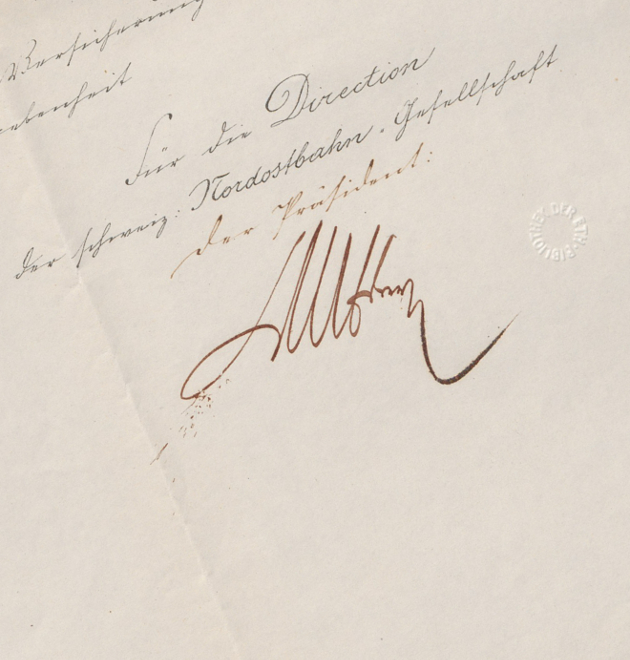 Versicherung
ebenheit
Für die Direction
der schweiz: Nordostbahn-Gesellschaft
Der Präsident:
BIBLIOTHEK DER ETH